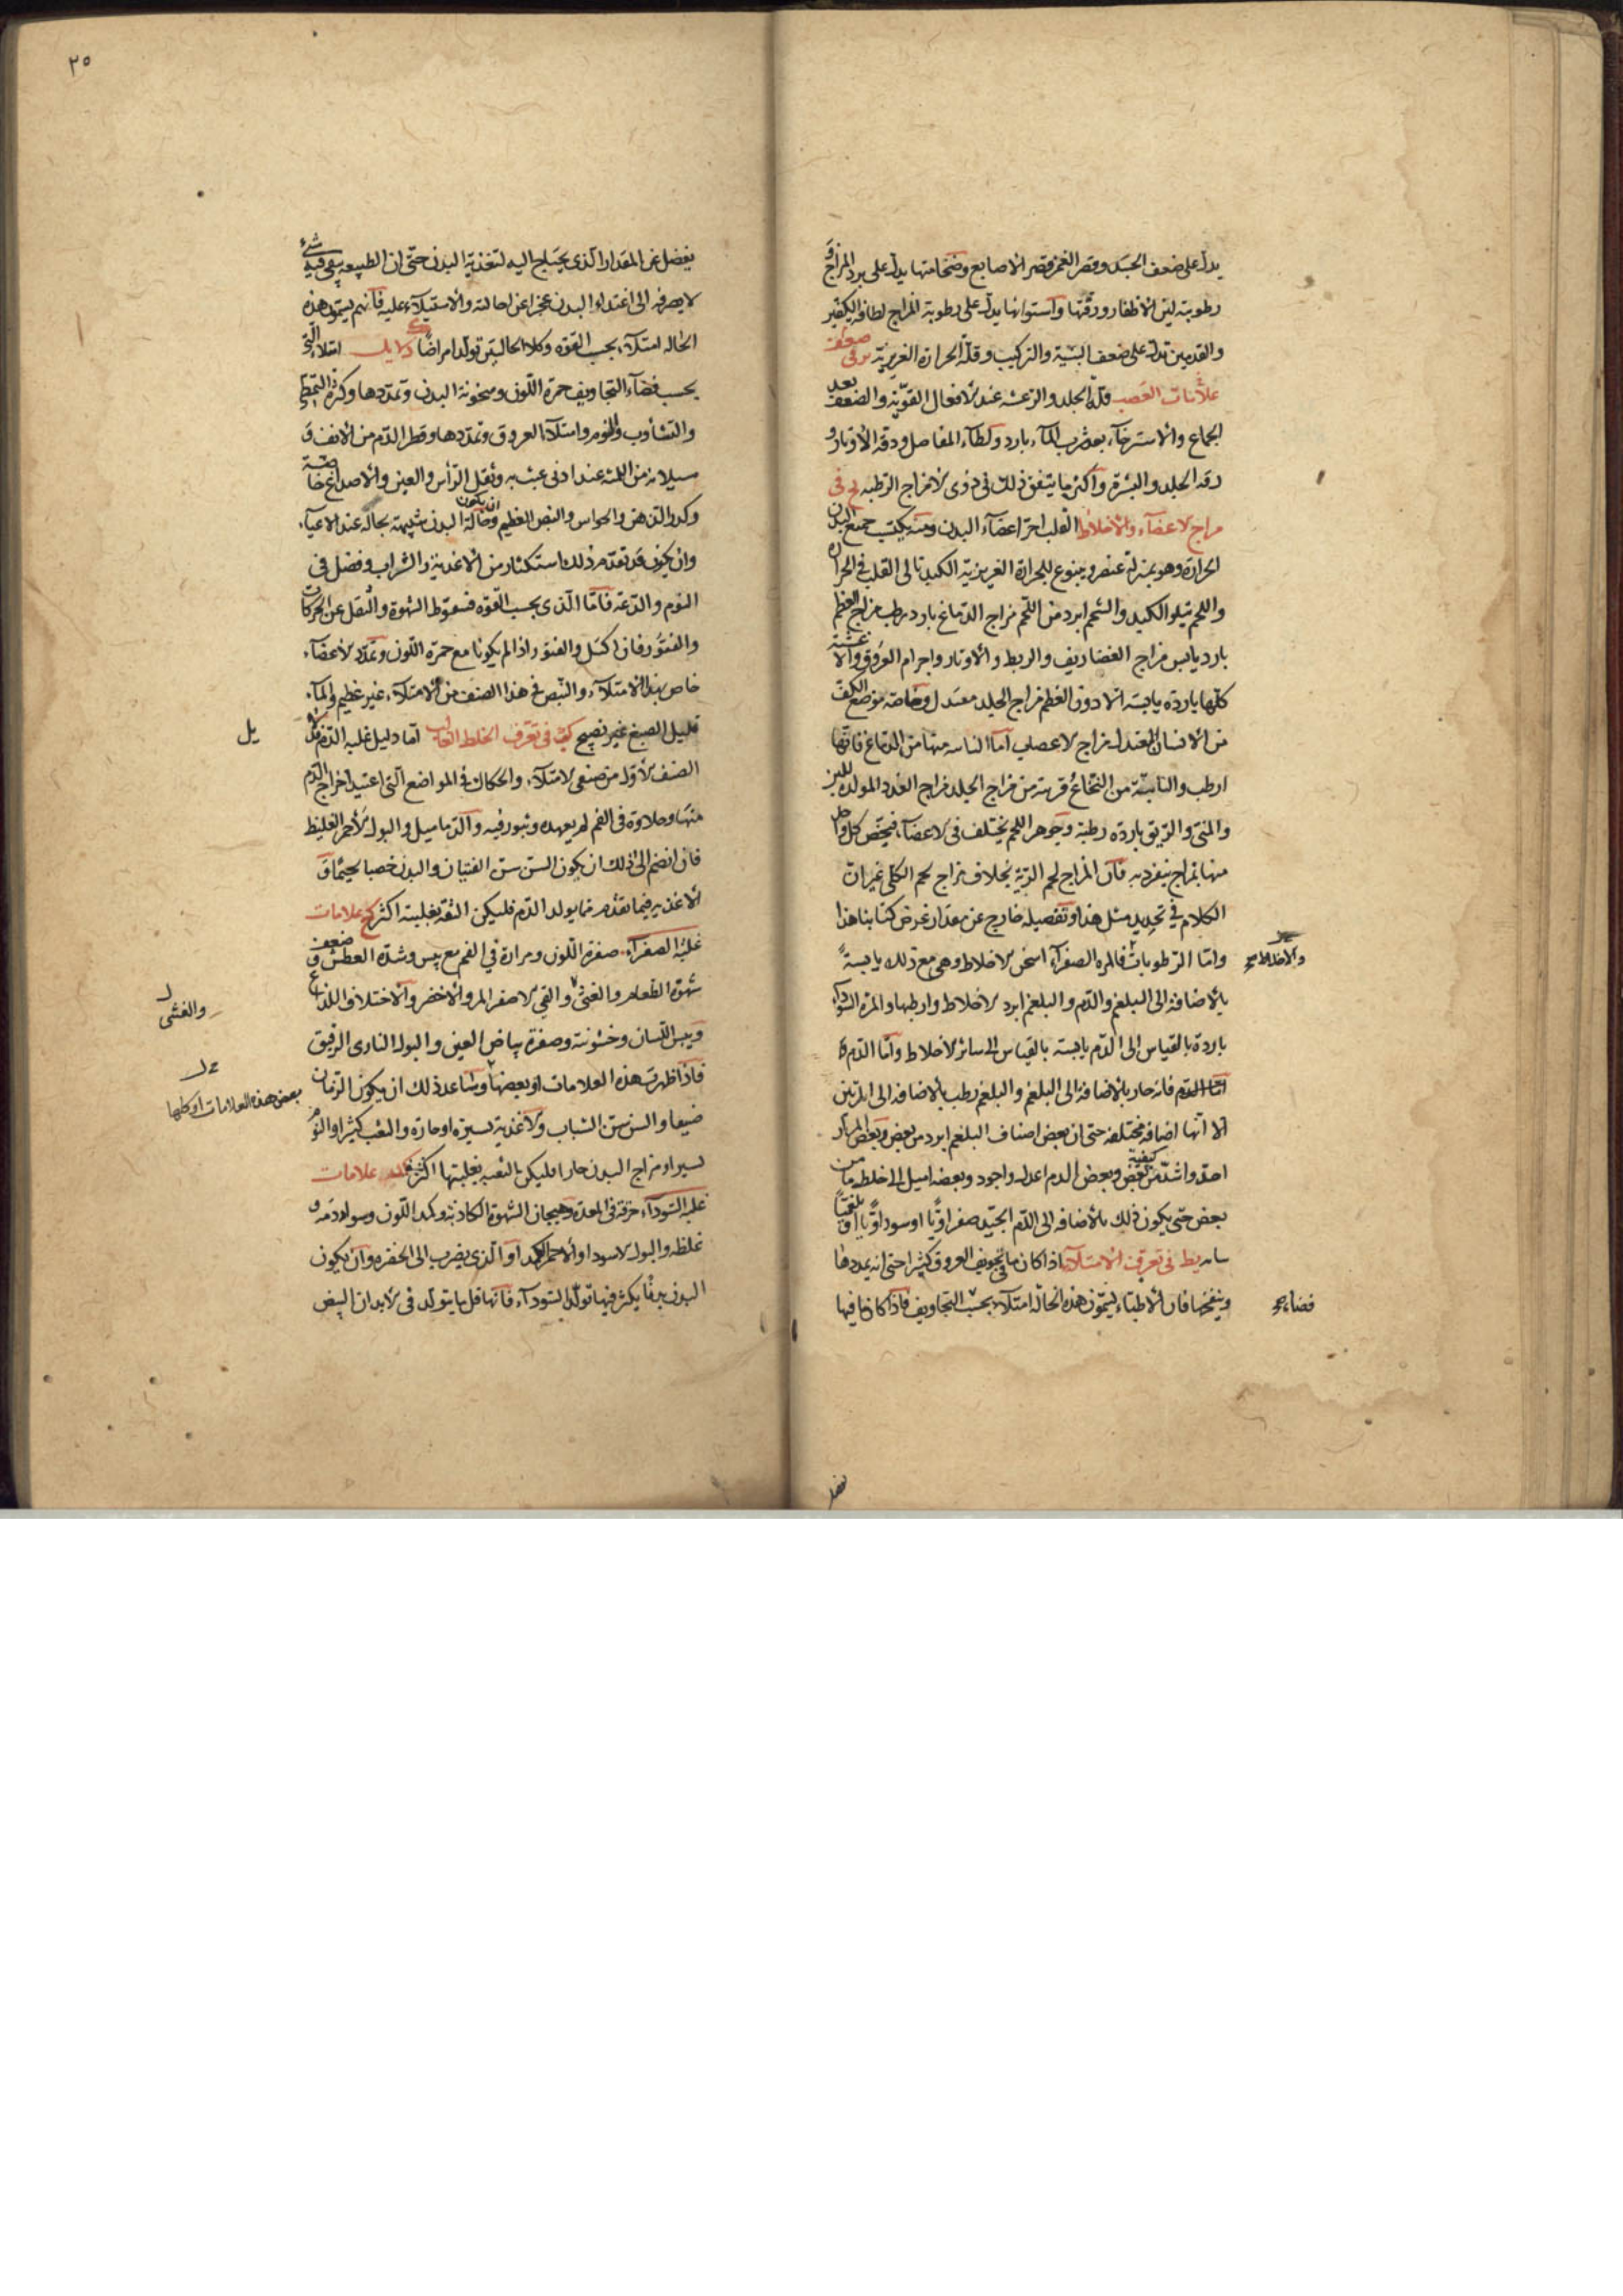 يدل على ضعف الجسد وقصر الغمز وقصر الاصابع وضخامتها يدل على برد المزاج و
رطوبته لين الاظفار ورقتها واستوائها يدل على رطوبة المزاج لطافة الكفين
والقدمين تدل على ضعف البنية والتركيب وقلة الحرارة الغريزية في ضعف
علامات العصب قلة الجلد والرعشه عند الافعال القوية والضعف بعد
الجماع والاسترخاء بعد شرب الماء بارد ولطاء المفاصل ودقة الاوتار و
رقه الجلد والبشرة واكثر ما يتفق ذلك في ذوى الامزاج الرطبه في
مزاج الاعضاء والاخلاط القلب احر اعضاء البدن ومنه يكتسب جميع البدن
الحرارة وهو بمنزلة عنصر وينبوع للحرارة الغريزية الكبد تالى القلب في الحرارة
واللحم يتلو الكبد والشحم ابرد من اللحم مزاج الدماغ بارد رطب مزاج العظم
بارد يابس مزاج الغضاريف والربط والاوتار واجرام العروق والاغشية
كلها باردة يابسة الا دون العظم مزاج الجلد معتدل وخاصه موضع الكف
من الانسان المعتدل مزاج الاعصاب اما النابته منها من الدماغ فانها
ارطب والنابتة من النخاع قريبة من مزاج الجلد مزاج الغدد المولدة للبن
والمنى والريق باردة رطبة وجوهر اللحم يختلف في الاعضاء فيختص كل واحد
منها بمزاج ينفرد به فان المزاج لحم الرية بخلاف مزاج لحم الكلى غير ان
الكلام في تحديد مثل هذا وتفصيله خارج عن مقدار غرض كتابنا هذا
واما الرطوبات فالمره الصفراء اسخن الاخلاط وهى مع ذلك يابسة
والاخلاط صح
بالاضافة الى البلغم والدم والبلغم ابرد الاخلاط وارطبها والمرة السوداء
باردة بالقياس الى الدم يابسة بالقياس الى سائر الاخلاط واما الدم
اما الدم فانه حار بالاضافة الى البلغم والبلغم رطب بالاضافه الى المرتين
الا انها اضافة مختلفة حتى ان بعض اصناف البلغم ابرد من بعض وبعض المرار
احد واشد كيفية من بعض وبعض الدم اعدل واجود وبعضه اميل الى خلط ما من
بعض حتى يكون ذلك بالاضافه الى الدم الجيد صفراويا او سوداويا او بلغميا
في تعرف الامتلاء اذا كان ما في تجويف العروق كثيرا حتى انه يمددها
وينفخها فان الاطباء يسمون هذه الحاله امتلاء بحسب التجاويف فاذا كان ما فيها
فضاء صح
يفضل
٢٥
يفضل عن المقدار الذى يحتاج اليه لتغذية البدن حتى ان الطبيعه يبقى فيه شئ
لا يصرفه الى اغتذاء البدن عجزا عن احالته والاستيلاء عليه فانهم يسمون هذه
الحاله امتلاء بحسب القوه وكلا الحالتين تولد امراضا دلايل امتلاء التى
بحسب فضاء التجاويف حمرة اللون وسخونة البدن وتمددها وكثرة التمطى
والتثاوب والنوم وامتلاء العروق وتمددها وقطر الدم من الانف و
سيلانه من اللثه عند ادنى عبث به وثقل الراس والعين والاصداغ خاصة
وكدر الذهن والحواس والنبض العظيم وان يكون حالة البدن شبيهة بحاله عند الاعياء
وان يكون قد تقدم ذلك استكثار من الاغذية والشراب وفضل في
النوم والدعة فاما الذى بحسب القوه فسقوط الشهوة والثقل عن الحركات
والفتور فان الكسل والفتور اذا لم يكونا مع حمرة اللون وتمدد الاعضاء
خاص بهذا الامتلاء والنبض في هذا الصنف من الامتلاء غير عظيم والماء
قليل الصبغ غير نضيج في تعرف الخلط الغالب اما دليل غلبه الدم
يل
الصنف الاول من صنفى الامتلاء والحكاك في المواضع التى اعتيد اخراج الدم
منها وحلاوة في الفم لم يعهده وبثور فيه والدماميل والبول الاحمر الغليظ
فان انضم الى ذلك ان يكون السن سن الفتيان والبدن خصبا لحيما و
الاغذية فيما تقدم مما يولد الدم فليكن الثقة بغلبته اكثر علامات
غلبة الصفراء صفرة اللون ومرارة في الفم مع يبس وشدة العطش وضعف
شهوة الطعام والغثى والقي الاصفر المر والاخضر والاختلاف اللذاع
والغشى
ويبس اللسان وخشونته وصفرة بياض العين والبول النارى الرقيق
فاذا ظهرت هذه العلامات او بعضها وساعد ذلك ان يكون الزمان
بعض هذه العلامات او كلها
صيفا والسن سن الشباب والاغذية يسيرة او حارة والتعب كثيرا والنوم
يسيرا ومزاج البدن حارا فليكن الثقة بغلبتها اكثر علامات
غلبه السوداء حرقة في المعدة وهيجان الشهوة الكاذبة وكمد اللون وسواد دمه و
غلظه والبول الاسود او الاحمر الكمد او الذى يضرب الى الخضره وان يكون
البدن مما يكثر فيها تولد السوداء فانها قل ما يتولد في الابدان البيض